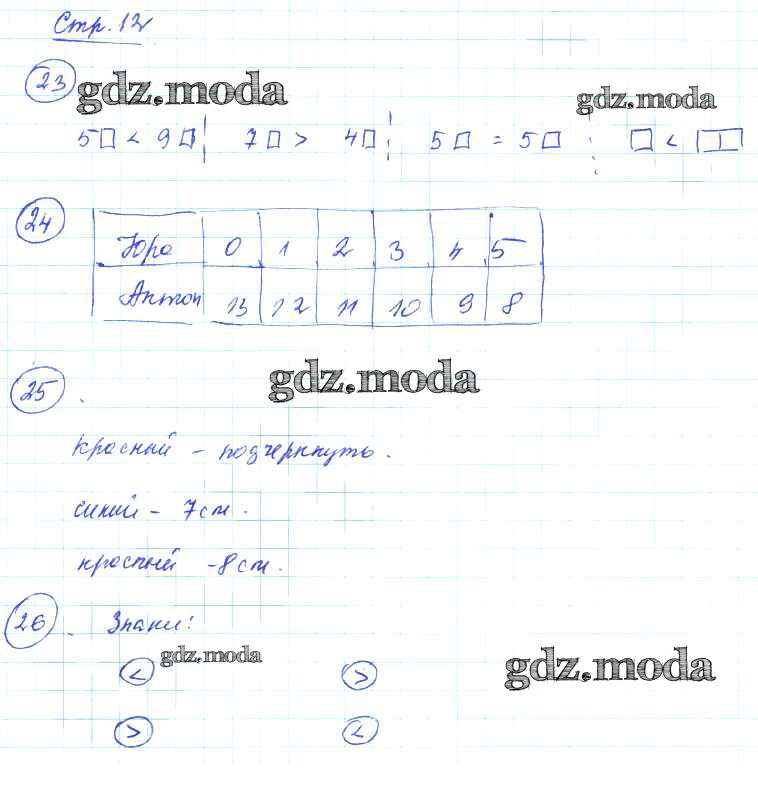 Стр. 12
23 gdz.moda
gdz.moda
5□ < 9□ 7□ > 4□ 5□ = 5□ □ < □□
24
Юра 0 1 2 3 4 5
Антон 13 12 11 10 9 8
gdz.moda
25.
красный – подчеркнуть.
синий – 7 см.
красный – 8 см.
26. Знаки:
gdz.moda
< >
gdz.moda
> <